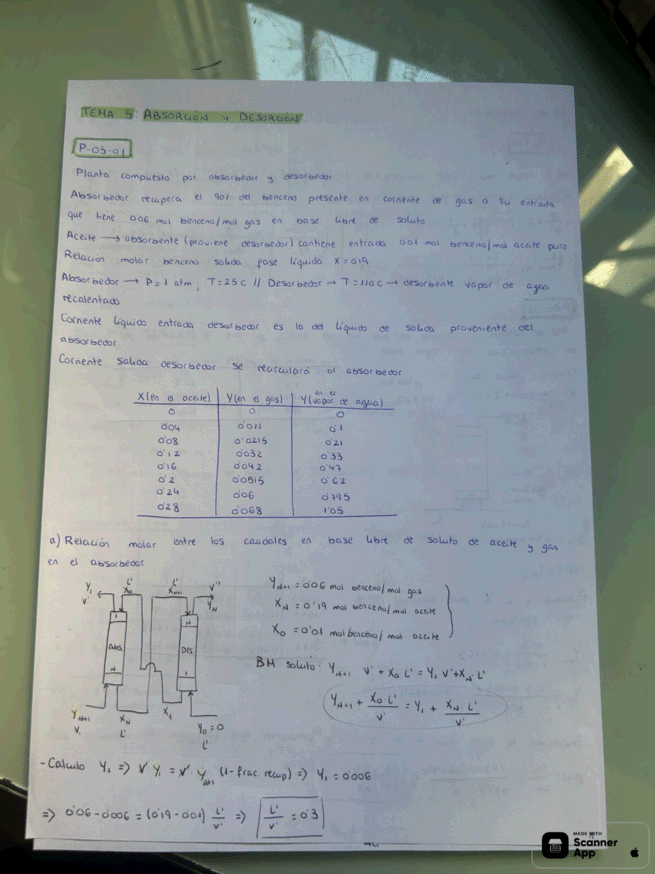 TEMA 5: ABSORCIÓN Y DESORCIÓN
P-05-01
Planta compuesta por absorbedor y desorbedor
Absorbedor recupera el 90% del benceno presente en corriente de gas a su entrada
que tiene 0'06 mol benceno/mol gas en base libre de soluto
Aceite → absorbente (proviene desorbedor) contiene entrada 0'01 mol benceno/mol aceite puro
Relación molar benceno salida fase líquida X=0'19
Absorbedor → P=1 atm, T=25C // Desorbedor → T=110C → desorbente vapor de agua
recalentado
Corriente líquido entrada desorbedor es la del líquido de salida proveniente del
absorbedor
Corriente salida desorbedor se recirculará al absorbedor
X(en el aceite) Y(en el gas) Y(en el vapor de agua)
0 0 0
0'04 0'011 0'1
0'08 0'0215 0'21
0'12 0'032 0'33
0'16 0'042 0'47
0'2 0'0515 0'62
0'24 0'06 0'795
0'28 0'068 1'05
a) Relación molar entre los caudales en base libre de soluto de aceite y gas
en el absorbedor
Y1 V' L' X0 L' XN+1 V'' YN
1 N
ABS. DES.
N 1
YN+1 V' XN L' X1 Y0=0 L'
YN+1 = 0'06 mol benceno/mol gas
XN = 0'19 mol benceno/mol aceite
X0 = 0'01 mol benceno/mol aceite
BM soluto: YN+1 V' + X0 L' = Y1 V' + XN L'
YN+1 + X0 L'/V' = Y1 + XN L'/V'
- Calculo Y1 => V' Y1 = V' YN+1 (1-frac. recup) => Y1 = 0'006
=> 0'06-0'006 = (0'19-0'01) L'/V' => L'/V' = 0'3
MADE WITH
Scanner
App